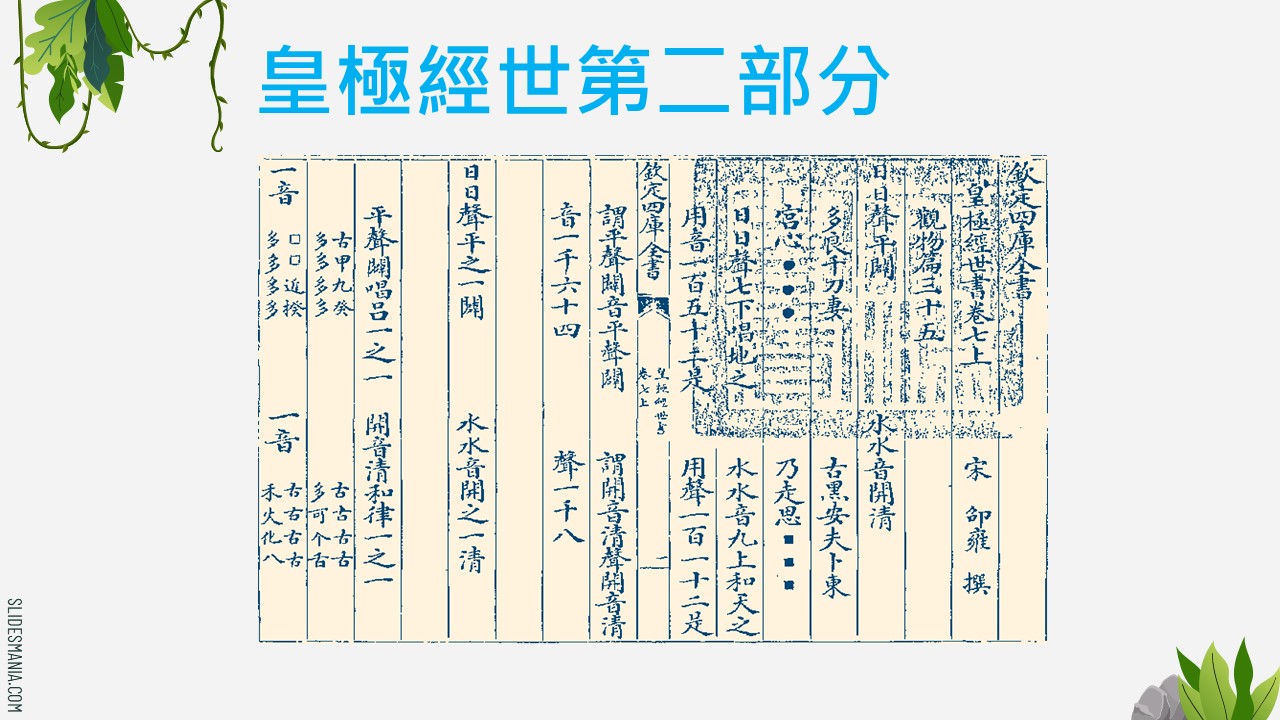 皇極經世第二部分
欽定四庫全書
皇極經世書卷七上
宋 邵雍 撰
觀物篇三十五
日日聲平闢
水水音開清
多良千刀妻
古黑安夫卜東
宮心●●●
乃走思■■■
日日聲七下唱地之
水水音九上和天之
用音一百五十二是
用聲一百一十二是
欽定四庫全書
皇極經世書
卷七上
二
謂平聲闢音平聲闢
謂開音清聲開音清
音一千六十四
聲一千八
日日聲平之一闢
水水音開之一清
平聲闢唱呂一之一
開音清和律一之一
古甲九癸
多多多多
古古古古
多可个舌
一音
□□近揆
多多多多
一音
古古古古
禾火化八
SLIDESMANIA.COM